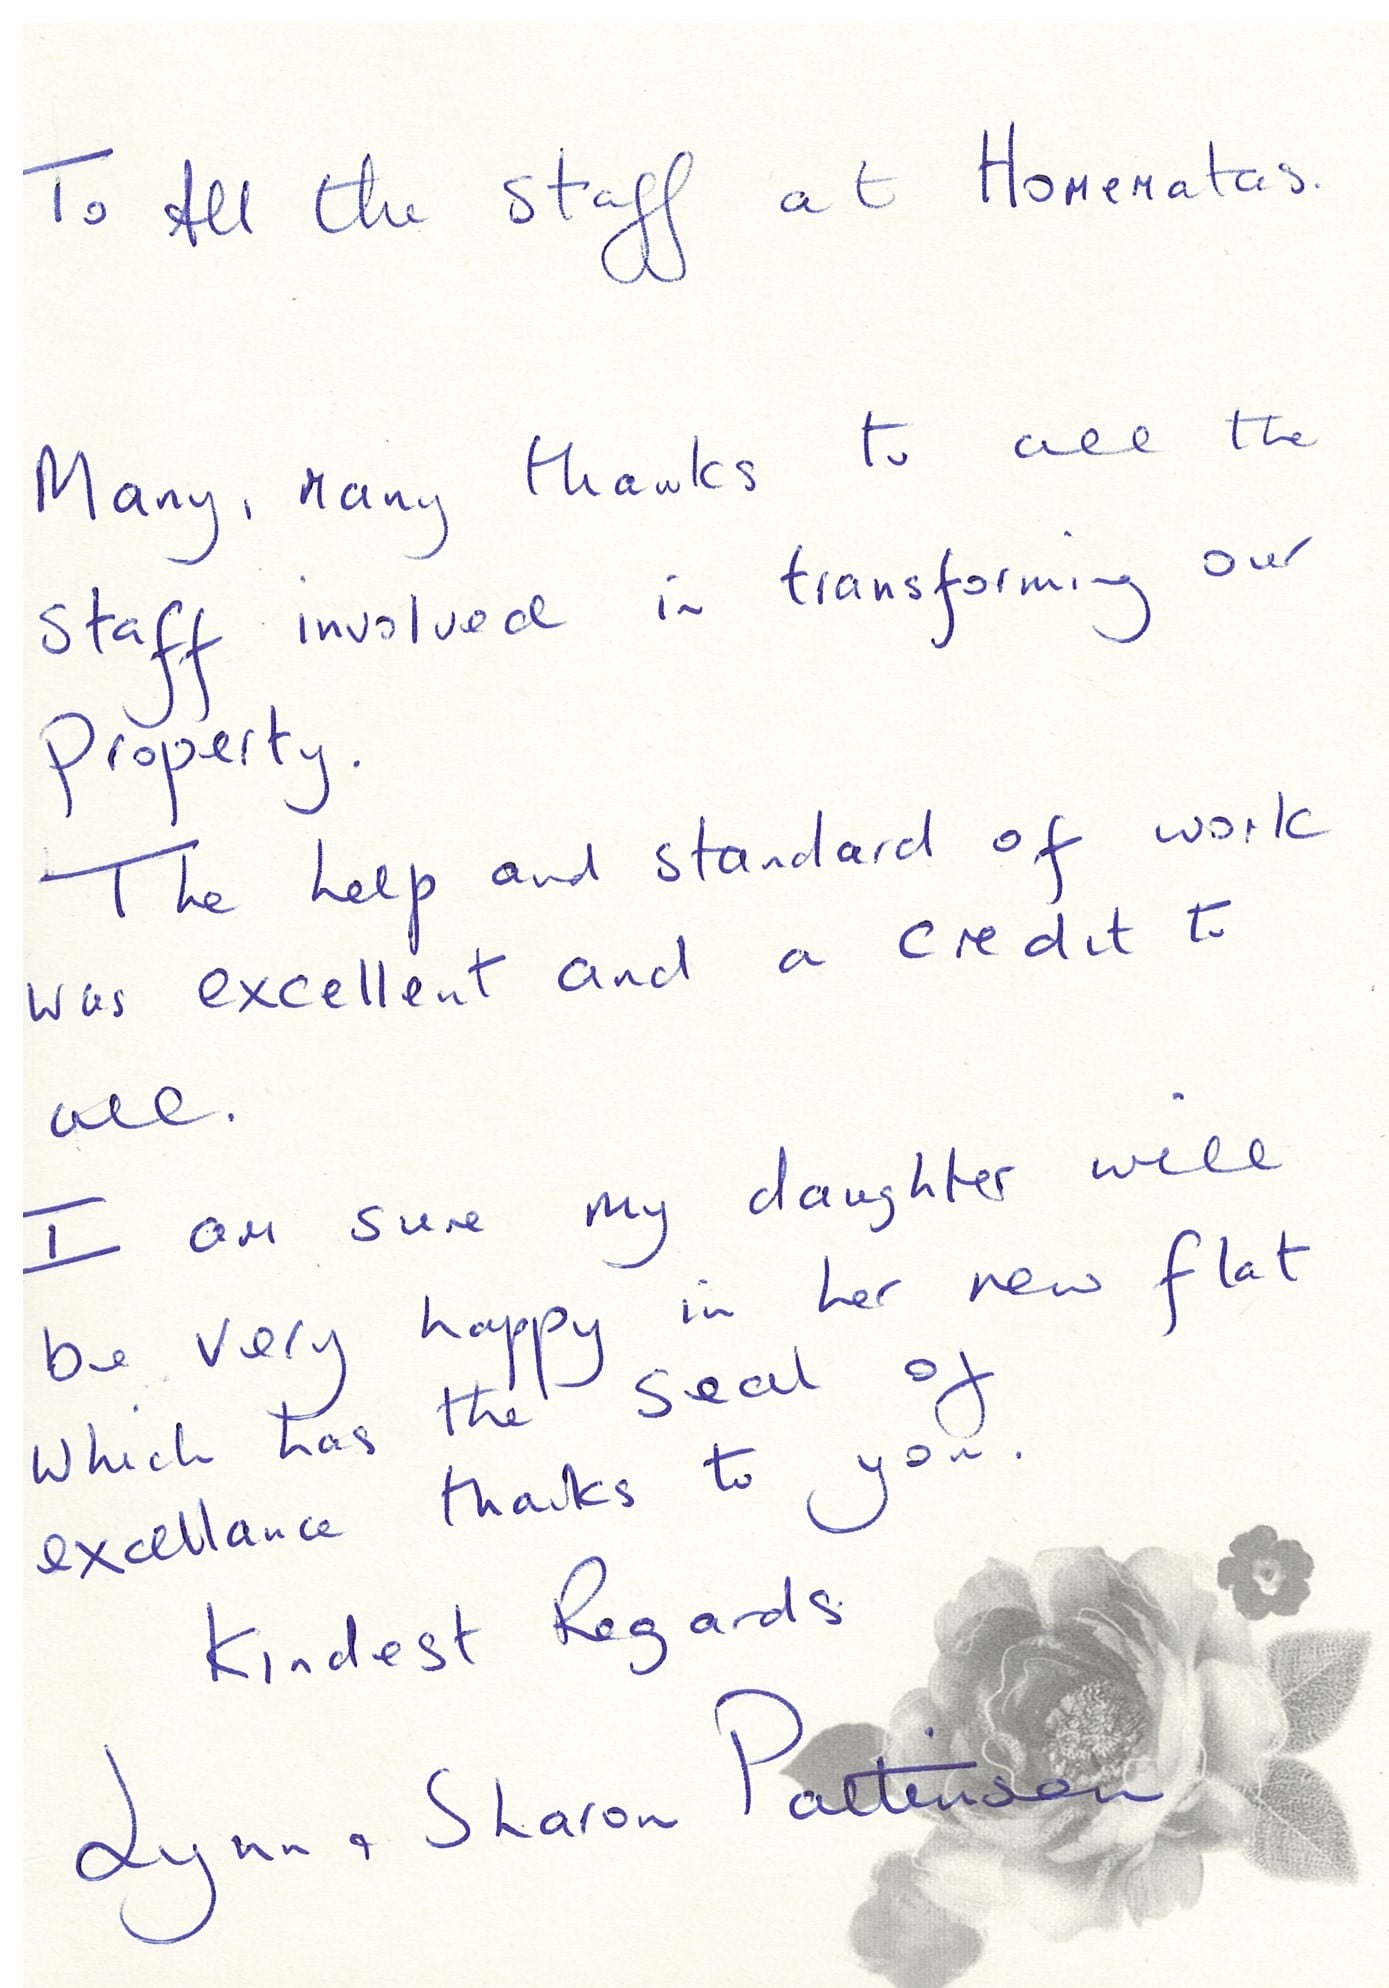 To All the staff at Homematas.
Many, many thanks to all the
staff involved in transforming our
Property.
The help and standard of work
was excellent and a credit to
all.
I am sure my daughter will
be very happy in her new flat
which has the seal of
excellance thanks to you.
Kindest Regards
Lynn + Sharon Pattinson